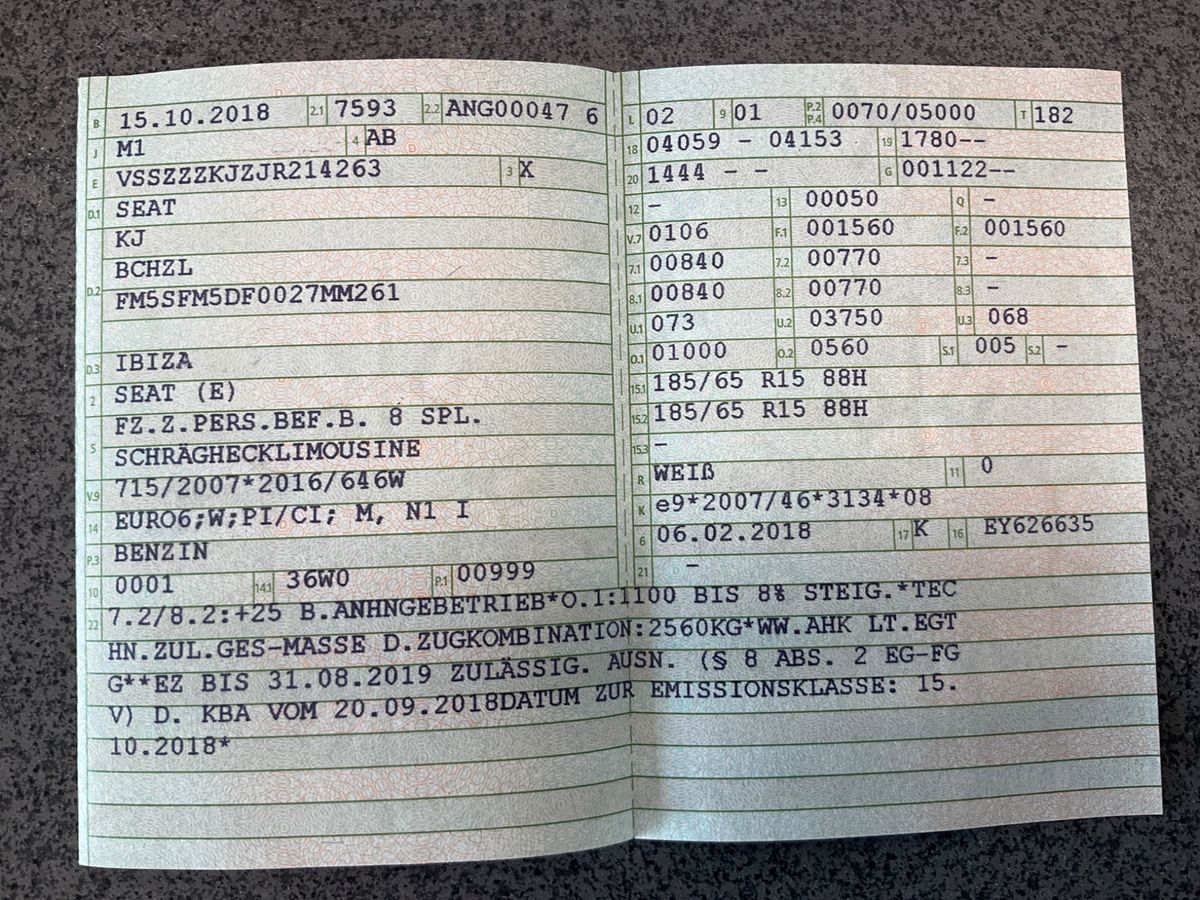 B 15.10.2018 2.1 7593 2.2 ANG00047 6
J M1 4 AB
E VSSZZZKJZJR214263 3 X
D.1 SEAT
KJ
D.2 BCHZL
FM5SFM5DF0027MM261
D.3 IBIZA
2 SEAT (E)
FZ.Z.PERS.BEF.B. 8 SPL.
5 SCHRÄGHECKLIMOUSINE
V.9 715/2007*2016/646W
14 EURO6;W;PI/CI; M, N1 I
P.3 BENZIN
10 0001 14.1 36W0 P.1 00999
L 02 9 01 P.2 P.4 0070/05000 T 182
18 04059 - 04153 19 1780--
20 1444 - - G 001122--
12 - 13 00050 Q -
V.7 0106 F.1 001560 F.2 001560
7.1 00840 7.2 00770 7.3 -
8.1 00840 8.2 00770 8.3 -
U.1 073 U.2 03750 U.3 068
O.1 01000 O.2 0560 S.1 005 S.2 -
15.1 185/65 R15 88H
15.2 185/65 R15 88H
15.3 -
R WEIß 11 0
K e9*2007/46*3134*08
6 06.02.2018 17 K 16 EY626635
21 -
22 7.2/8.2:+25 B.ANHNGEBETRIEB*O.1:1100 BIS 8% STEIG.*TEC
HN.ZUL.GES-MASSE D.ZUGKOMBINATION:2560KG*WW.AHK LT.EGT
G**EZ BIS 31.08.2019 ZULÄSSIG. AUSN. (§ 8 ABS. 2 EG-FG
V) D. KBA VOM 20.09.2018DATUM ZUR EMISSIONSKLASSE: 15.
10.2018*